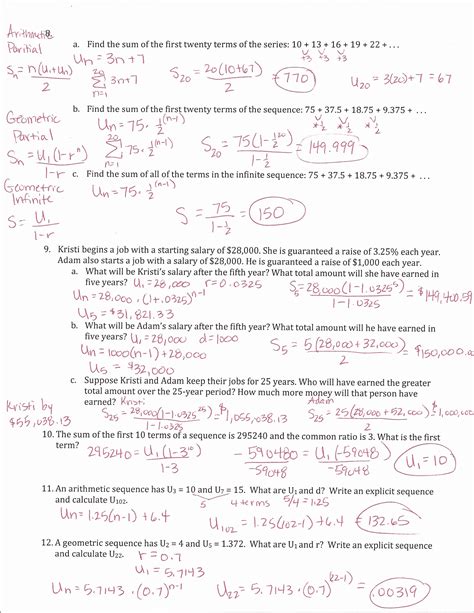 Arithmetic 8.
Paritial
a. Find the sum of the first twenty terms of the series: 10 + 13 + 16 + 19 + 22 + . . .
+3 +3 +3
Un = 3n+7
Sn = n(U1+Un) / 2
20 Σ n=1 3n+7
S20 = 20(10+67) / 2 = 770
U20 = 3(20)+7 = 67
b. Find the sum of the first twenty terms of the sequence: 75 + 37.5 + 18.75 + 9.375 + . . .
Geometric
Partial
Un = 75 · 1/2^(n-1)
*1/2 *1/2 *1/2
Sn = U1(1-r^n) / 1-r
20 Σ n=1 75 · 1/2^(n-1)
S20 = 75(1-1/2^20) / 1-1/2 = 149.999
c. Find the sum of all of the terms in the infinite sequence: 75 + 37.5 + 18.75 + 9.375 + . . .
Geometric
Infinite
Un = 75 · 1/2^(n-1)
S = U1 / 1-r
S = 75 / 1-1/2 = 150
9. Kristi begins a job with a starting salary of $28,000. She is guaranteed a raise of 3.25% each year.
Adam also starts a job with a salary of $28,000. He is guaranteed a raise of $1,000 each year.
a. What will be Kristi's salary after the fifth year? What total amount will she have earned in
five years? U1 = 28,000 r = 0.0325
S5 = 28,000(1-1.0325^5) / 1-1.0325 = $149,400.59
Un = 28,000 · (1+.0325)^n-1
U5 = $31,821.33
b. What will be Adam's salary after the fifth year? What total amount will he have earned in
five years? U1 = 28,000 d = 1000
S5 = 5(28,000 + 32,000) / 2 = $150,000.00
Un = 1000(n-1) + 28,000
U5 = $32,000
c. Suppose Kristi and Adam keep their jobs for 25 years. Who will have earned the greater
total amount over the 25-year period? How much more money will that person have
earned? Kristi Adam
Kristi by
$55,038.13
S25 = 28,000(1-1.0325^25) / 1-1.0325 = $1,055,038.13
S25 = 25(28,000 + 52,000) / 2 = $1,000,000
10. The sum of the first 10 terms of a sequence is 295240 and the common ratio is 3. What is the first
term?
295240 = U1(1-3^10) / 1-3
-590480 / -59048 = U1(-59048) / -59048
U1 = 10
11. An arithmetic sequence has U3 = 10 and U7 = 15. What are U1 and d? Write an explicit sequence
and calculate U102. 5 / 4 terms 5/4 = 1.25
Un = 1.25(n-1) + 6.4
U102 = 1.25(102-1) + 6.4 = 132.65
12. A geometric sequence has U2 = 4 and U5 = 1.372. What are U1 and r? Write an explicit sequence
and calculate U22. r = 0.7
U1 = 5.7143
Un = 5.7143 · (0.7)^n-1
U22 = 5.7143 · (0.7)^(22-1) = .00319